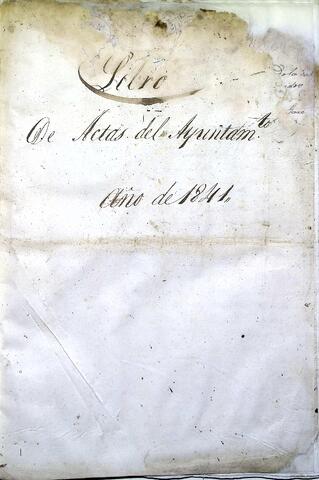 Libro
De Actas del Ayuntam.to
Año de 1841.